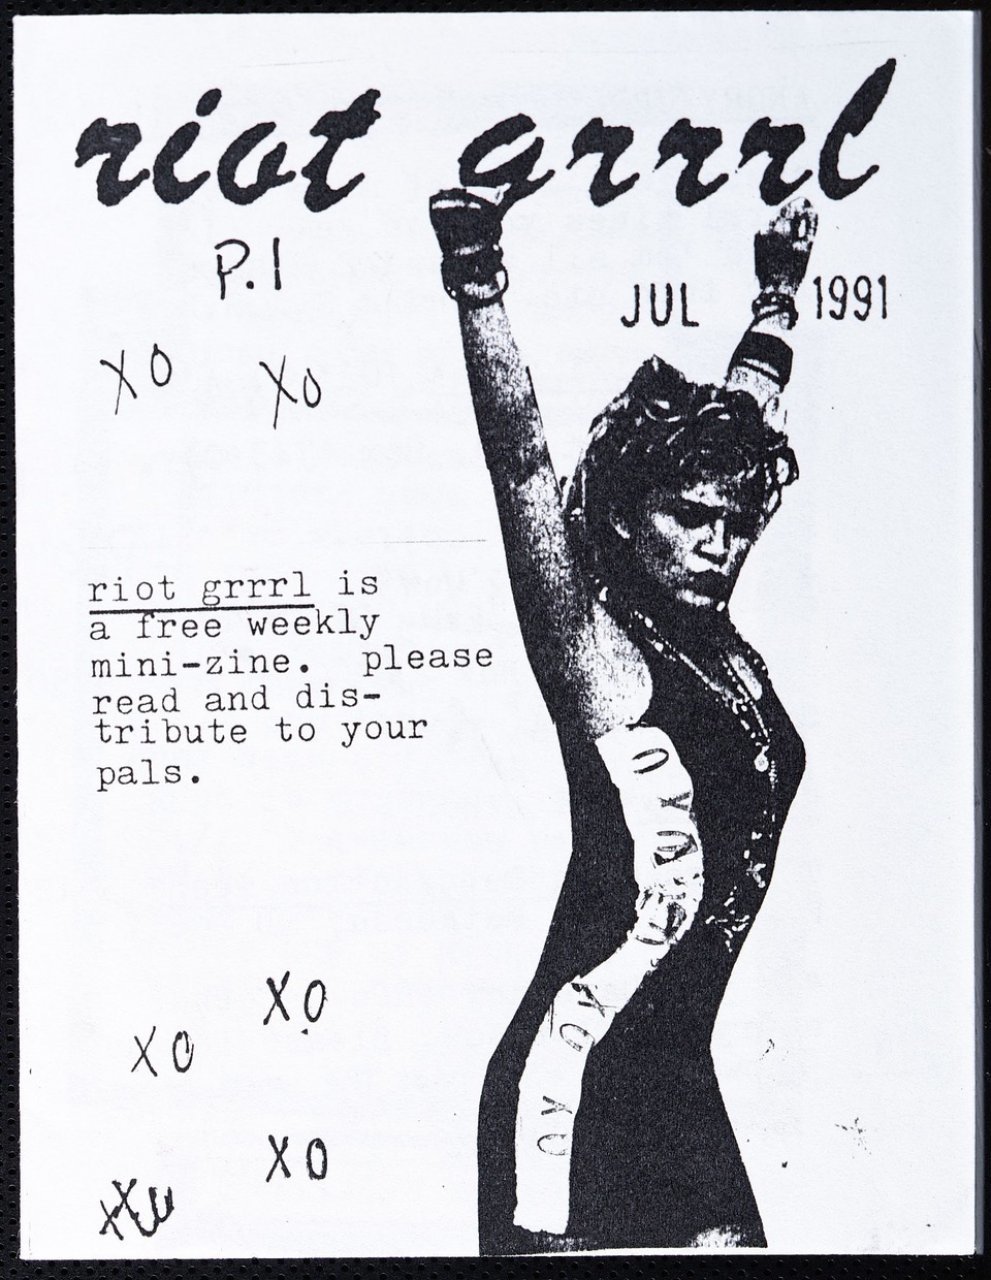 riot grrrl
P.1
JUL 1991
XO XO
riot grrrl is
a free weekly
mini-zine. please
read and dis-
tribute to your
pals.
XO
XO
XO